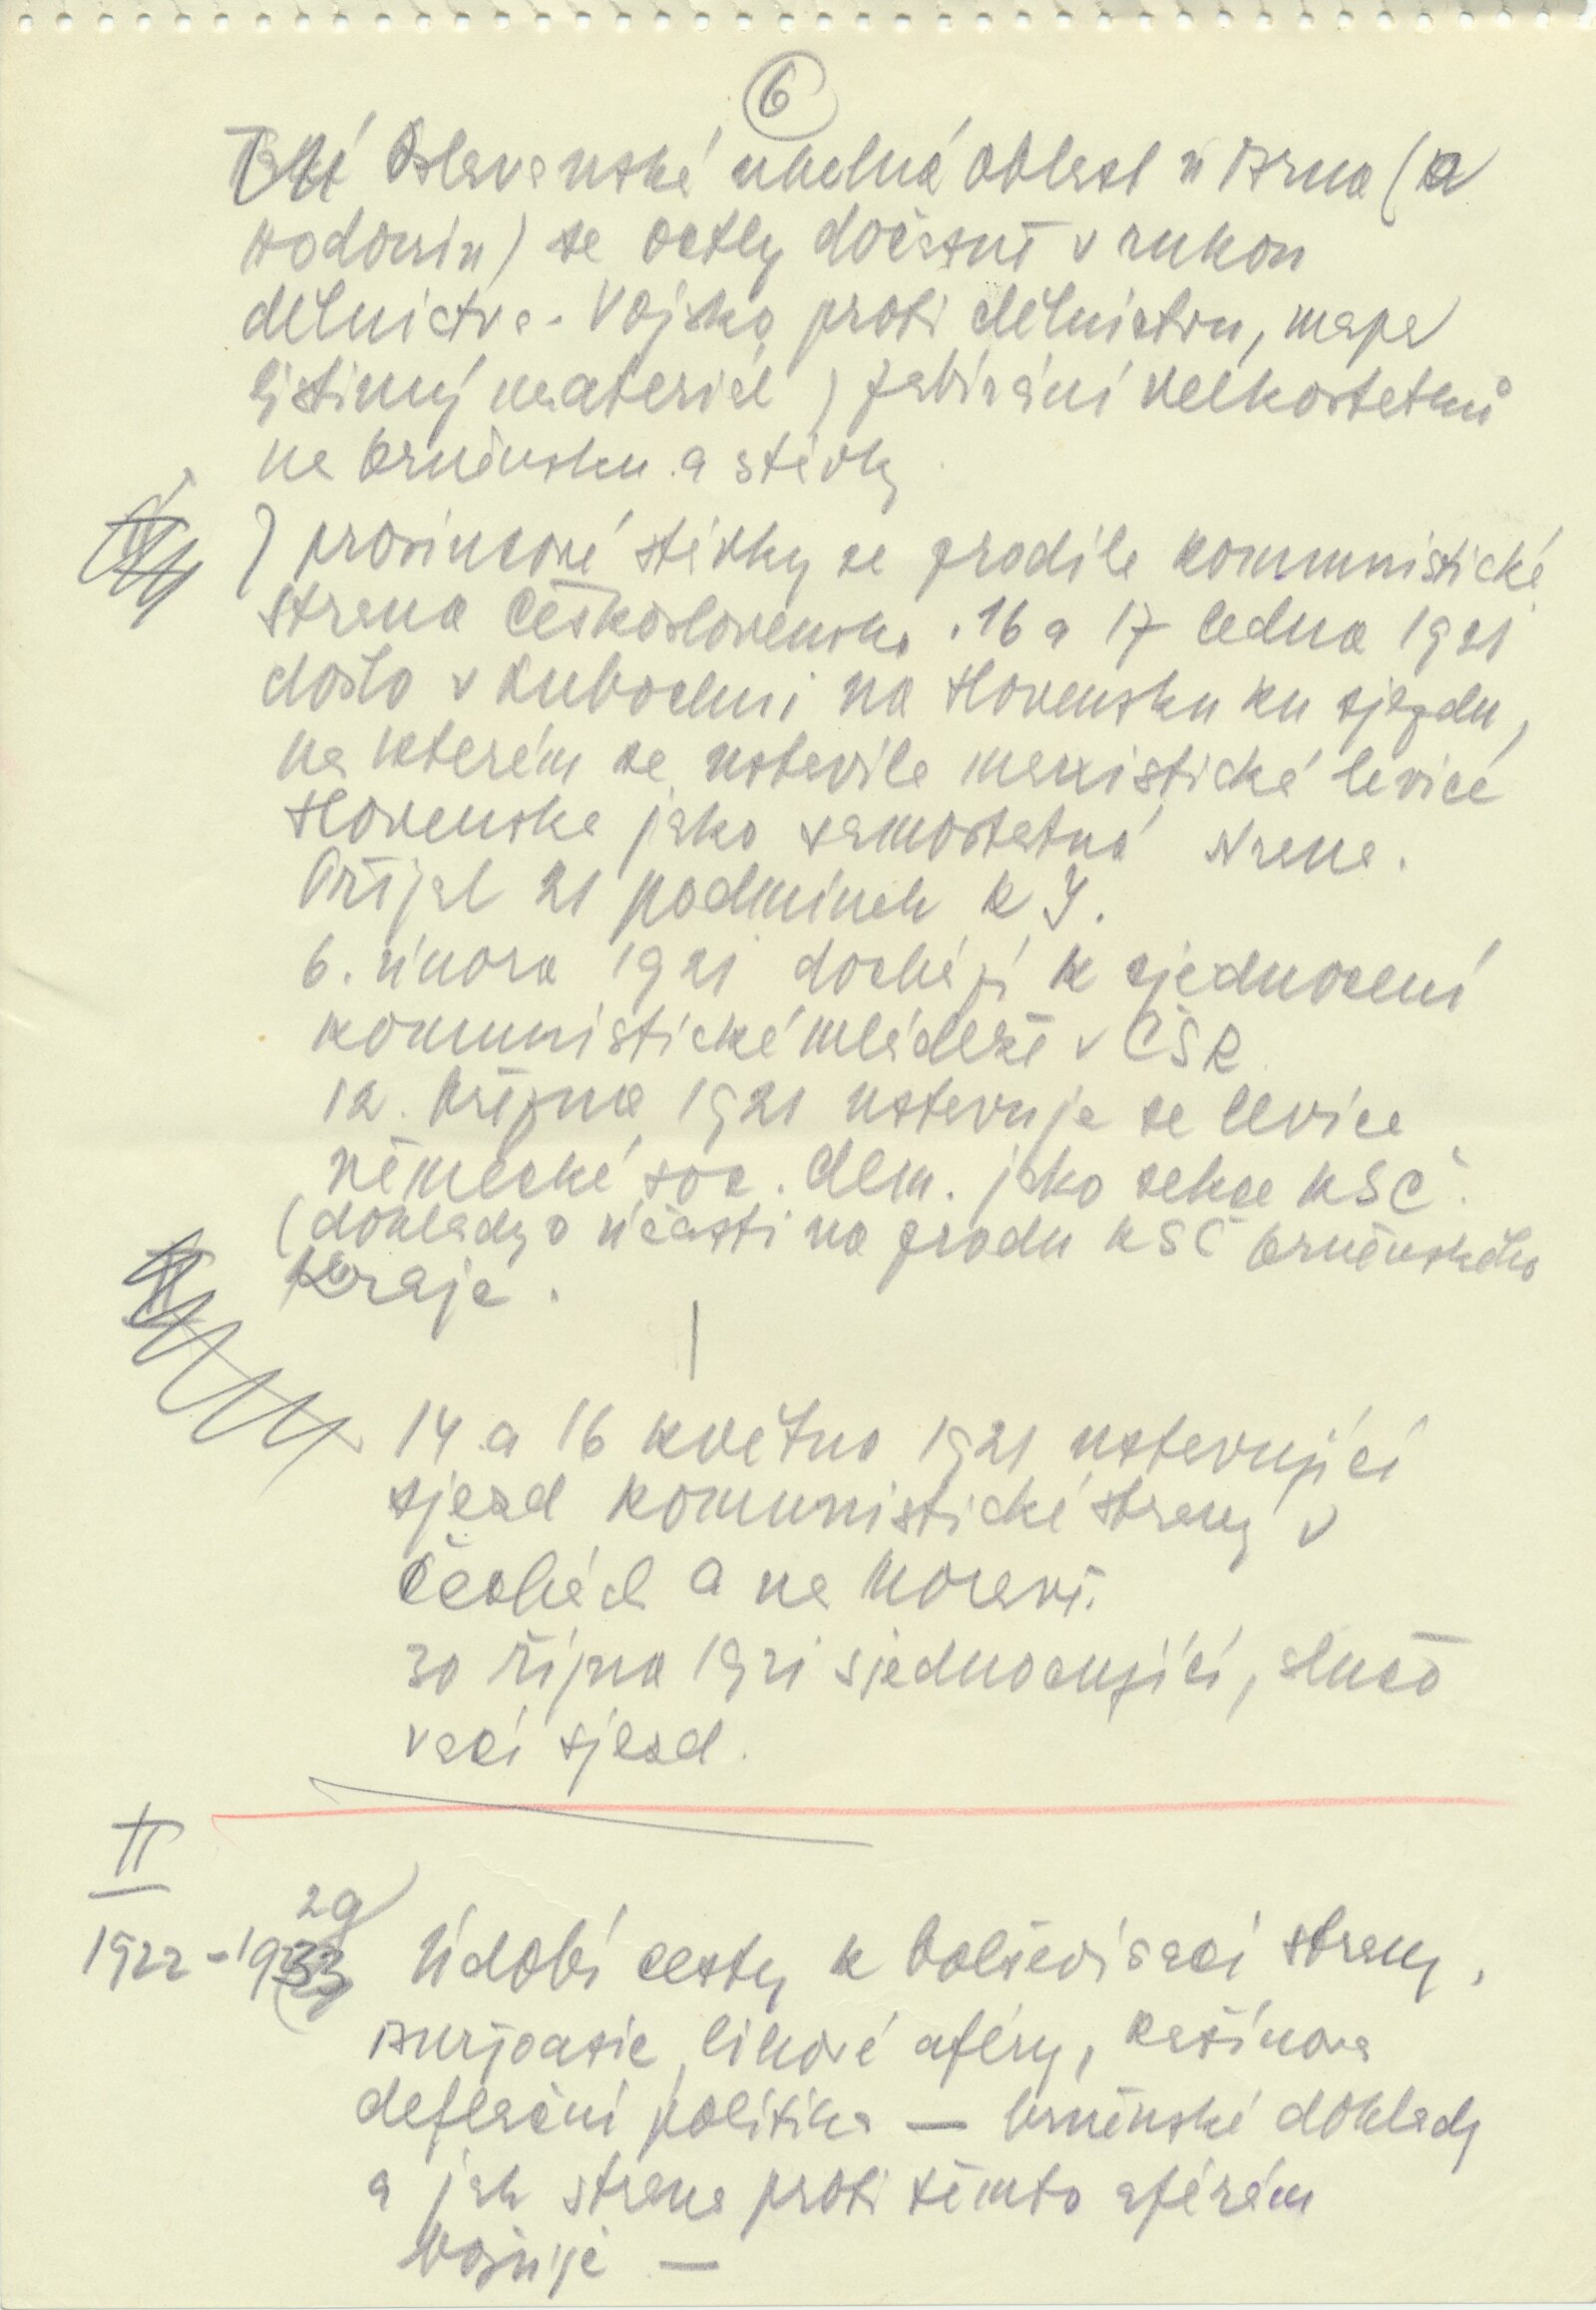 6
Též Oslavanská uhelná oblast u Brna (a
Hodonín) se octly dočasně v rukou
dělnictva. Vojsko proti dělnictvu, mapa
listinný materiál) zabírání velkostatků
na brněnsku a stávky
) prosincové stávky se zrodila komunistická
strana Československa. 16 a 17 ledna 1921
došlo v Lubochni na Slovensku ku sjezdu,
na kterém se ustavila marxistická levice
Slovenska jako samostatná strana.
Přijal 21 podmínek K I.
6. února 1921 dochází k sjednocení
komunistické mládeže v ČSR
12. března 1921 ustavuje se levice
německé soc. dem. jako sekce KSČ.
(doklady o účasti na zrodu KSČ brněnského
kraje.
14 a 16 května 1921 ustavující
sjezd komunistické strany v
Čechách a na Moravě.
30 října 1921 sjednocující, slučo
vací sjezd.
II
29
1922 - 1933 Údobí cesty k bolševisaci strany,
Buržoasie, lihové aféry, Rašínova
deflační politika — brněnské doklady
a jak strana proti těmto aférám
bojuje —